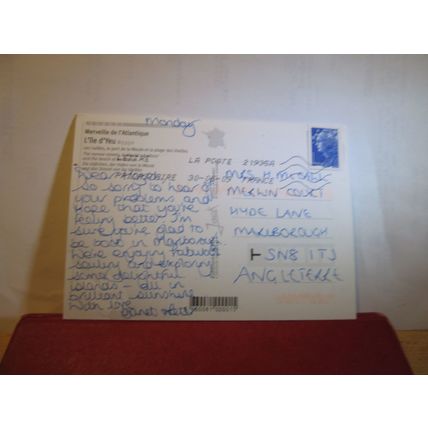 Monday
Merveille de l'Atlantique
L'île d'Yeu
LA POSTE 21935A
30-06-09 FRANCE
so sorry to hear of
your problems and
hope that you're
feeling better. I'm
sure you're glad to
be back in Marlborough.
We're enjoying fabulous
sailing and exploring
some delightful
islands - all in
brilliant sunshine
With love
MRS H.
MERLIN COURT
HYDE LANE
MARLBOROUGH
SN8 1TJ
ANGLETERRE